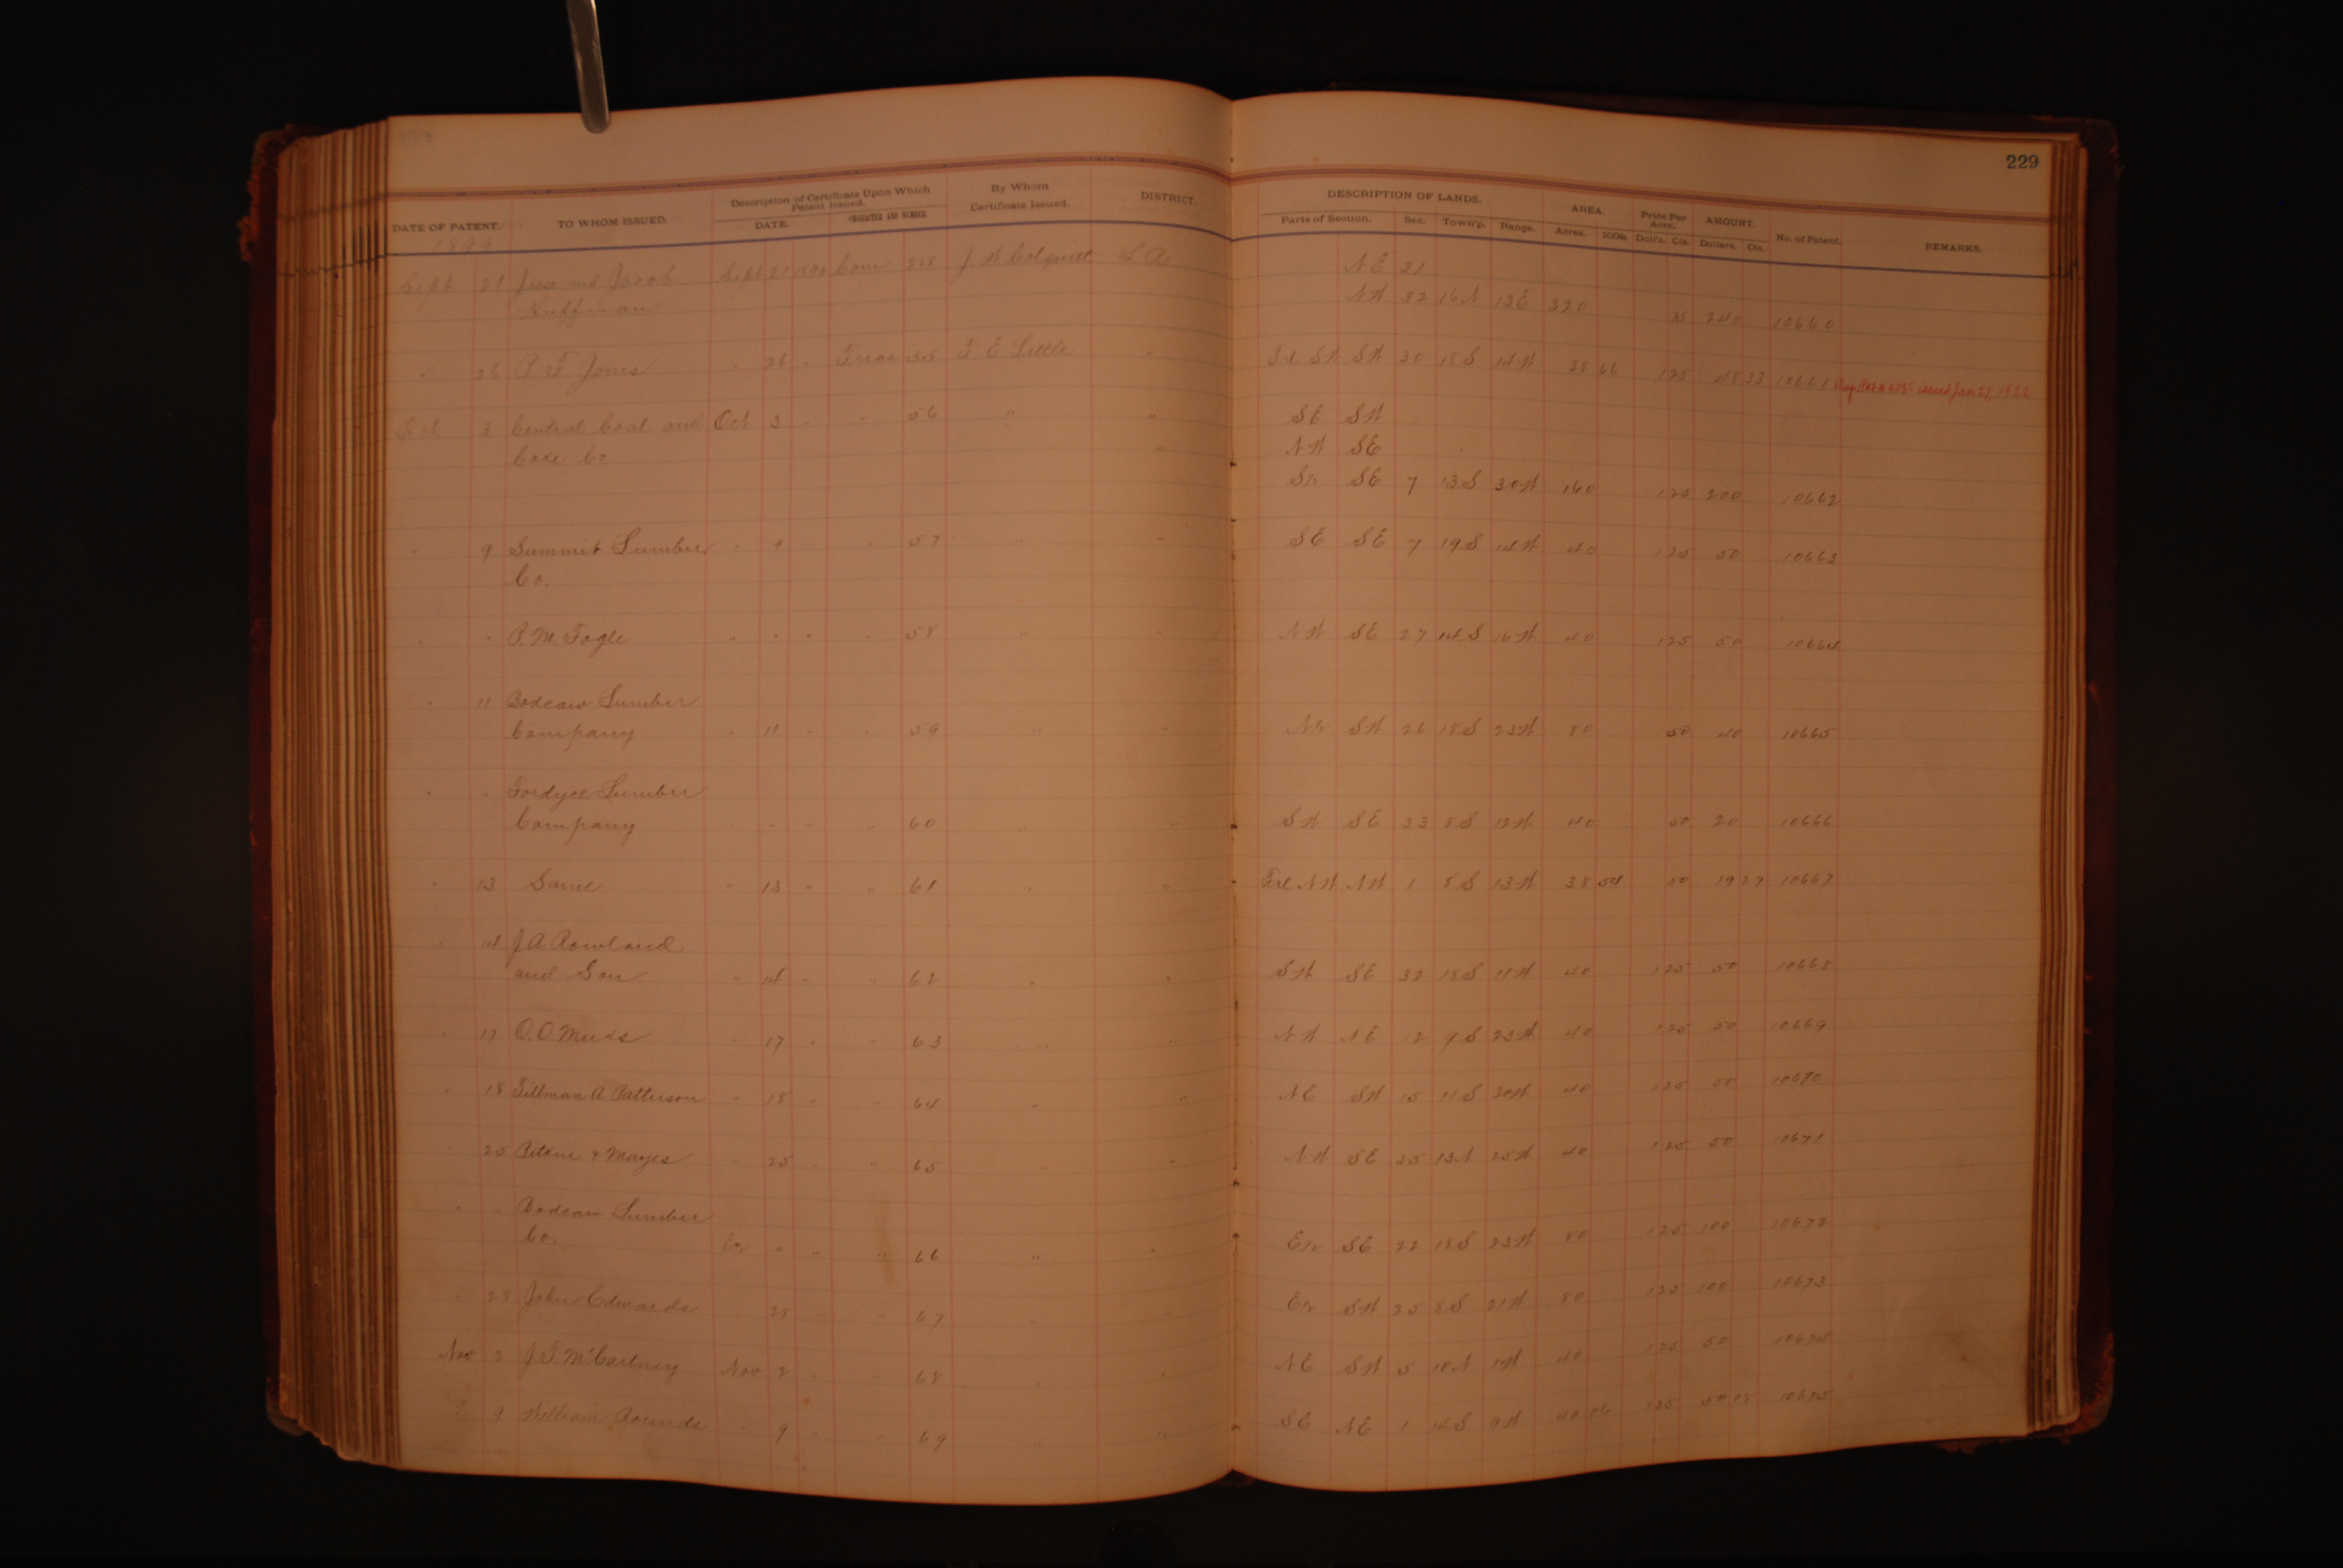 229
DATE OF PATENT. TO WHOM ISSUED. Description of Certificate Upon Which Patent Issued. DATE. CHARACTER AND NUMBER By Whom Certificate Issued. DISTRICT. DESCRIPTION OF LANDS. Parts of Section. Sec. Town'p. Range. AREA. Acres. 100ths Price Per Acre. Doll's. Cts. AMOUNT. Dollars. Cts. No. of Patent. REMARKS.
1899
Sept 21 Jesse and Jacob Sept 21 1899 Com 238 J W Colquitt L R NE 31
Huffman NW 32 16N 13E 320 75 240 10660
" 26 P. F. Jones " 26 " Treas 55 T E Little " Frl SW SW 30 18S 14W 38 66 125 48 33 10661 issued Jan 27, 1922
Oct 3 Central Coal and Oct 3 " " 56 " " SE SW
Coke Co " NW SE
S½ SE 7 13S 30W 160 125 200 10662
" 9 Summit Lumber " 9 " " 57 " " SE SE 7 19S 14W 40 125 50 10663
Co.
" " P. M. Fogle " " " " 58 " " NW SE 27 14S 16W 40 125 50 10664
" 11 Bodcaw Lumber
Company " 11 " " 59 " " N½ SW 26 18S 23W 80 50 40 10665
" " Fordyce Lumber
Company " " " " 60 " " SW SE 33 8S 12W 40 50 20 10666
" 13 Same " 13 " " 61 " " Frl NW NW 1 8S 13W 38 54 50 19 27 10667
" 14 J. A. Rowland
and Son " 14 " " 62 " " SW SE 32 18S 11W 40 125 50 10668
" 17 O. O. Meeks " 17 " " 63 " " NW NE 12 9S 23W 40 125 50 10669
" 18 Tillman A. Patterson " 18 " " 64 " " NE SW 15 11S 30W 40 125 50 10670
" 25 & Mayes " 25 " " 65 " " NW SE 35 13N 25W 40 125 50 10671
" " Bodcaw Lumber
Co. " " " 66 " " E½ SE 22 18S 23W 80 125 100 10672
" 28 John Edwards " 28 " " 67 " " E½ SW 25 8S 21W 80 125 100 10673
Nov 2 J. T. McCartney Nov 2 " " 68 " " NE SW 5 10N 1W 40 125 50 10674
" 9 William Rounds " 9 " " 69 " " SE NE 1 14S 9W 40 06 125 50 08 10675